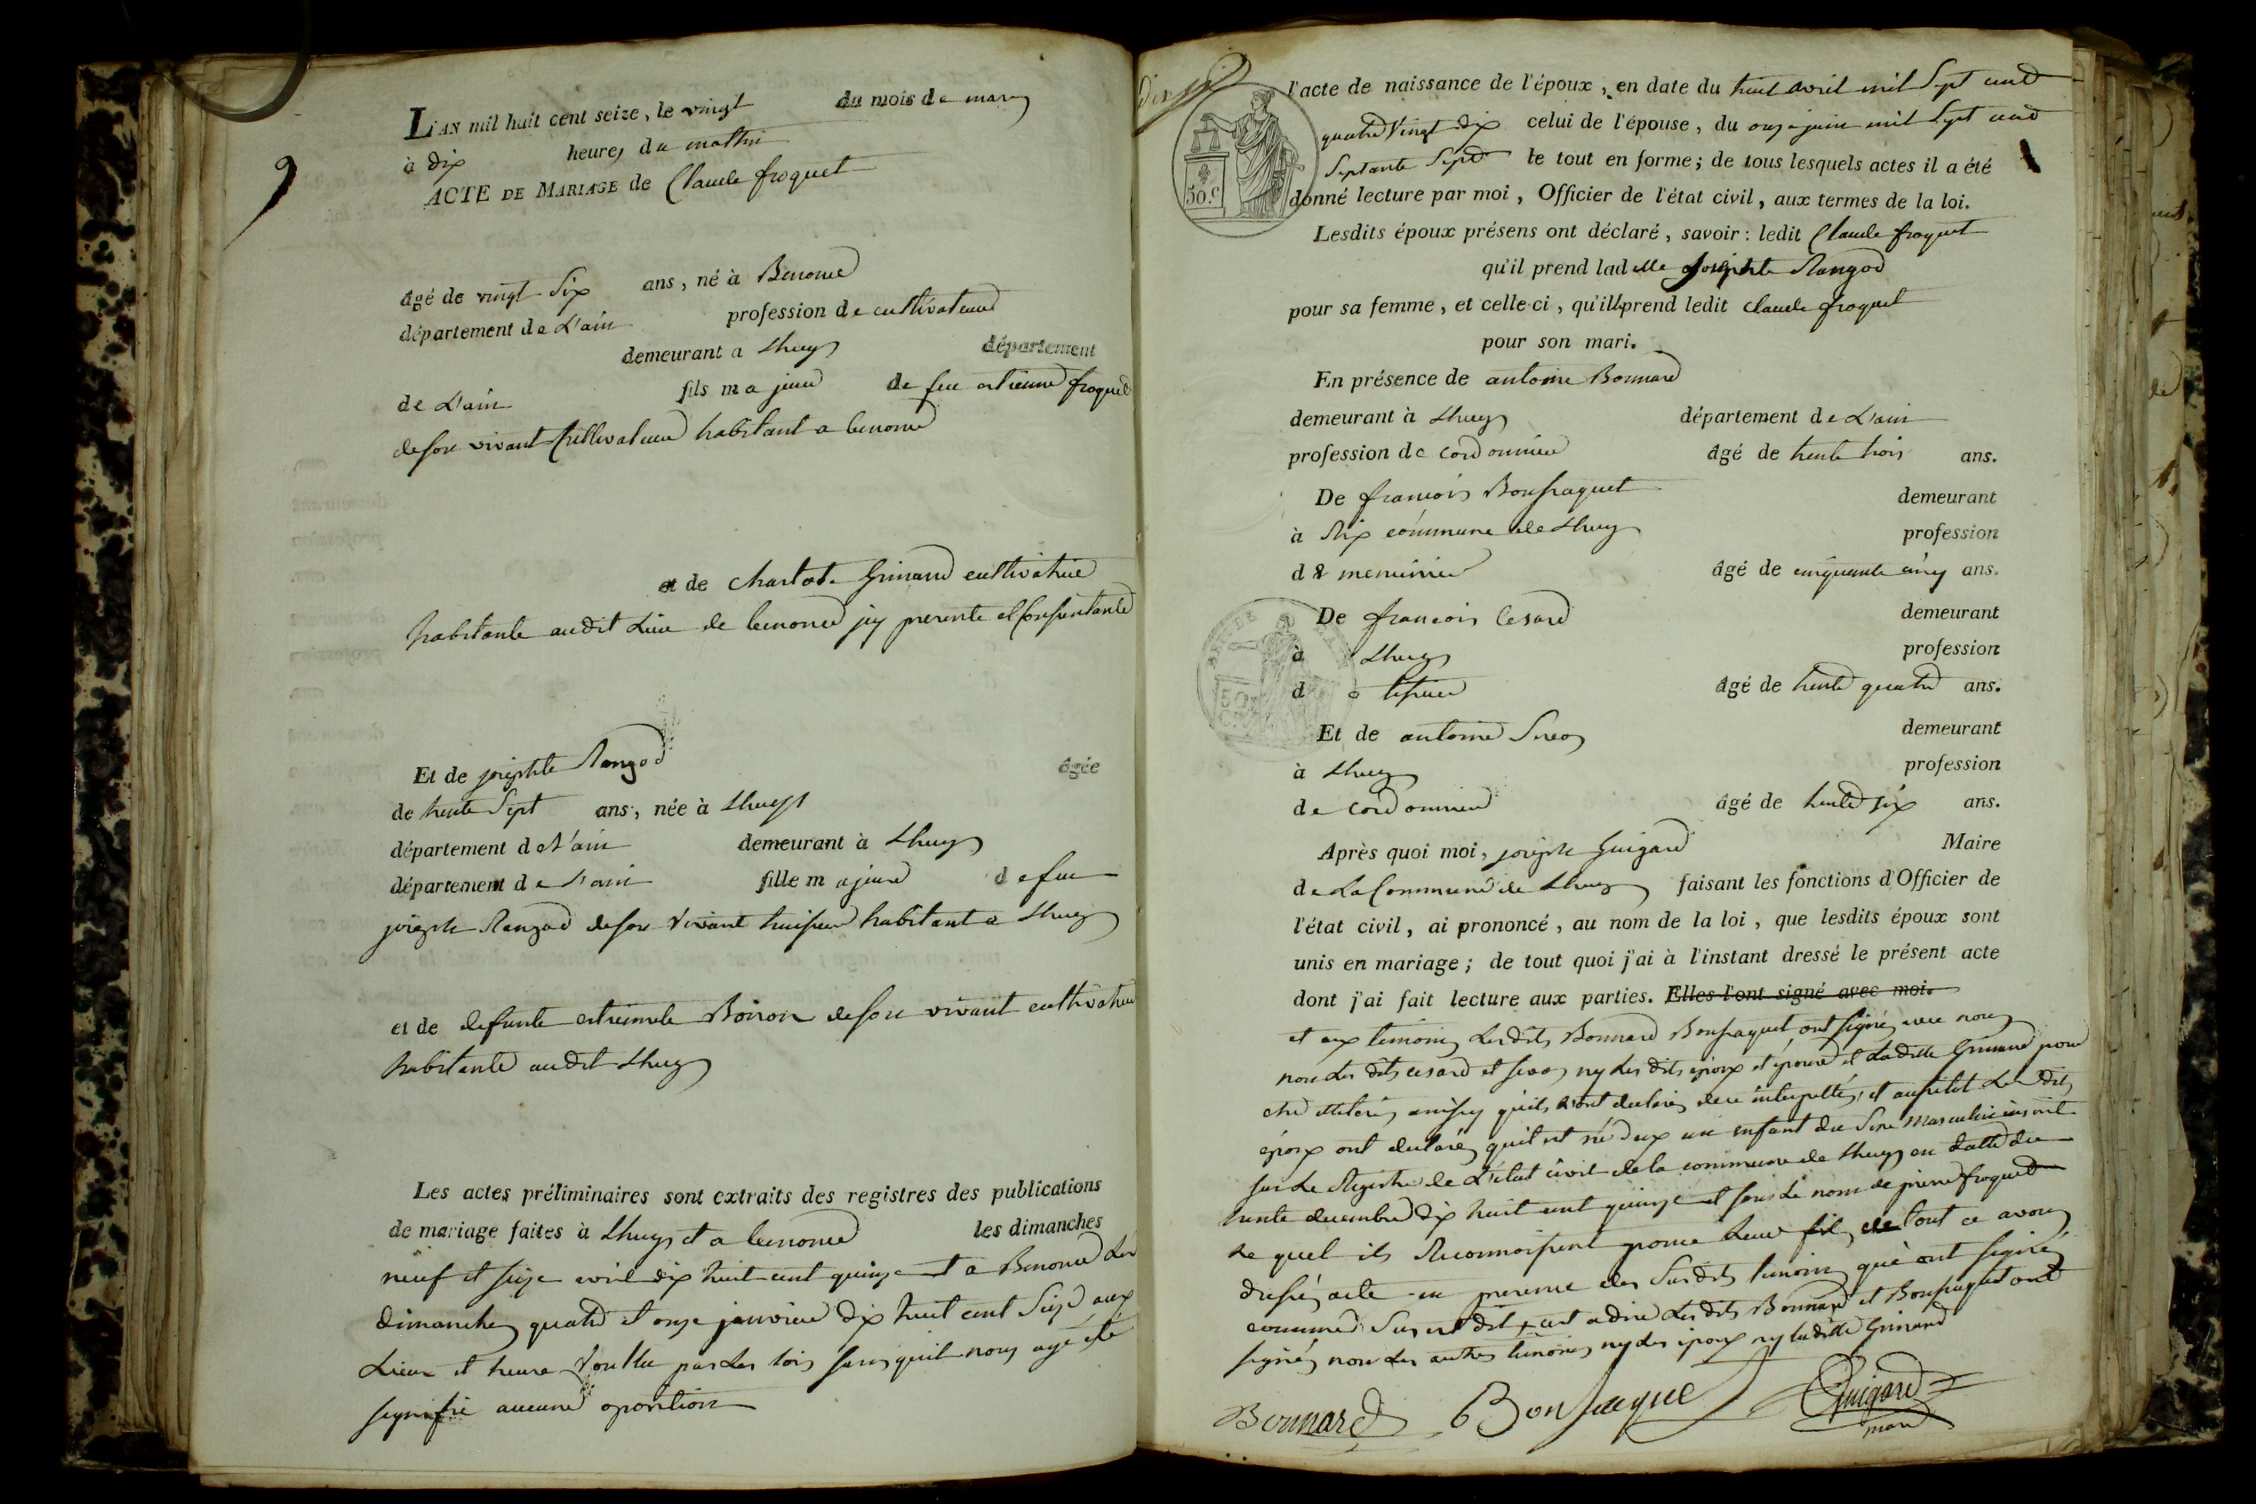 L'AN mil huit cent seize, le vingt du mois de mars
à dix heures du mattin
9
ACTE DE MARIAGE de Claude froquet
âgé de vingt Six ans, né à Benonce
département de L'ain profession de cultivateur
demeurant a Lhuys département
de L'ain fils majeur de feu etienne froquet
de son vivant Cultivateur habitant a benonce
et de charlote Grinand cultivatrice
habitante audit Lieu de benonce icy presente et Consentante
Et de josephte Rangod âgée
de trente Sept ans, née à Lhuys
département de L'ain demeurant à Lhuys
département de L'ain fille majeure de feu
joseph Rangod de son vivant huissier habitant a Lhuys
et de defunte etiennete Boiron de son vivant cultivatrice
habitante audit Lhuys
Les actes préliminaires sont extraits des registres des publications
de mariage faites à Lhuys et a benonce les dimanches
neuf et seize avril dix huit cent quinze et a Benonce Les
dimanches quatre et onze janvier dix huit cent Seize aux
Lieux et heure Voullu par Les lois sans quil nous aye été
signifié aucune oposition
dix
l'acte de naissance de l'époux, en date du huit avril mil Sept cent
quatre Vingt dix celui de l'épouse, du onze juin mil Sept cent
Septante Sept le tout en forme; de tous lesquels actes il a été
50.c
donné lecture par moi, Officier de l'état civil, aux termes de la loi.
Lesdits époux présens ont déclaré, savoir: ledit Claude froquet
qu'il prend ladelle Josephte Rangod
pour sa femme, et celle-ci, qu'elle prend ledit Claude froquet
pour son mari.
En présence de antoine Bonnard
demeurant à Lhuys département de L'ain
profession de cordonnier âgé de trente trois ans.
De francois Bonfraquet demeurant
à Rix commune de Lhuys profession
de menuisier âgé de cinquante cinq ans.
De francois Cesard demeurant
à Lhuys profession
de âgé de trente quatre ans.
Et de antoine demeurant
à Lhuys profession
de cordonnier âgé de trente six ans.
Après quoi moi, joseph Guigard Maire
de La Commune de Lhuys faisant les fonctions d'Officier de
l'état civil, ai prononcé, au nom de la loi, que lesdits époux sont
unis en mariage; de tout quoi j'ai à l'instant dressé le présent acte
dont j'ai fait lecture aux parties. Elles l'ont signé avec moi.
et aux temoins Les dits Bonnard Bonfraquet ont signé avec nous
non Les dits cesard et ny Les dits époux et épouse et Ladite Grinand pour
etre illitérés ainsy quils l'ont declarés de ce interpellés, et aussitot Les dits
époux ont declarés quil est né deux un enfant du Sexe Masculin inscrit
sur Le Registre de L'état civil de la commune de Lhuys en datte du
trente decembre dix huit cent quinze et sous Le nom de pierre froquet
Le quel ils Reconnoissent pour Leur fils, de tout ce avons
dressés acte en presence des Susdits temoins qui ont signés
comme Sus est dit, c'est a dire Les dits Bonnard et Bonfraquet ont
signés non Les autres temoins ny Les époux ny ladite Grinand
Bonnard Bonfraquet Guigard
maire